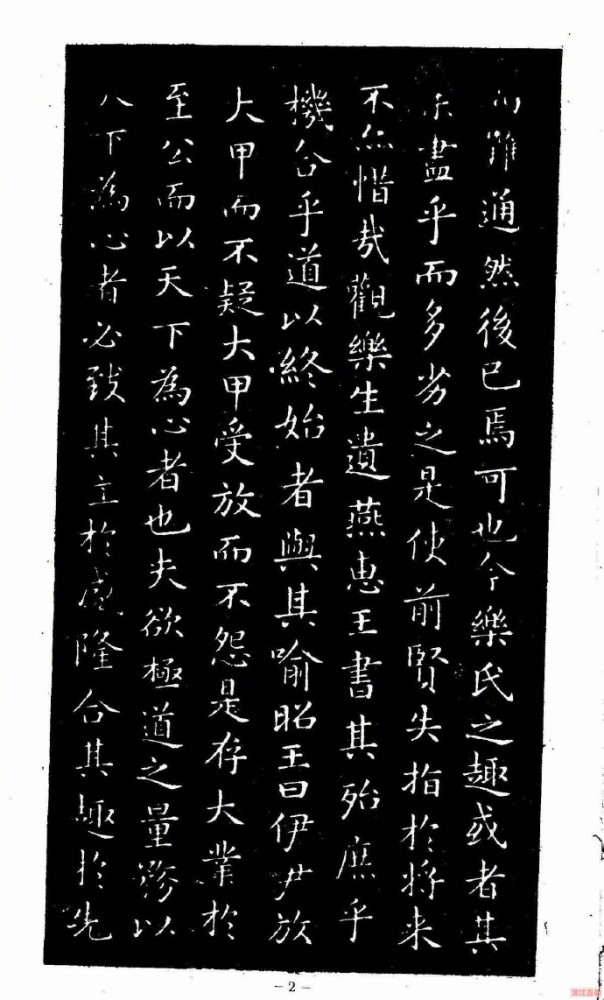 而難通然後已焉可也今樂氏之趣或者其
未盡乎而多劣之是使前賢失指於將来
不亦惜哉觀樂生遺燕惠王書其殆庶乎
機合乎道以終始者與其喻昭王曰伊尹放
大甲而不疑大甲受放而不怨是存大業於
至公而以天下為心者也夫欲極道之量務以
天下為心者必致其主於盛隆合其趣於先
- 2 -